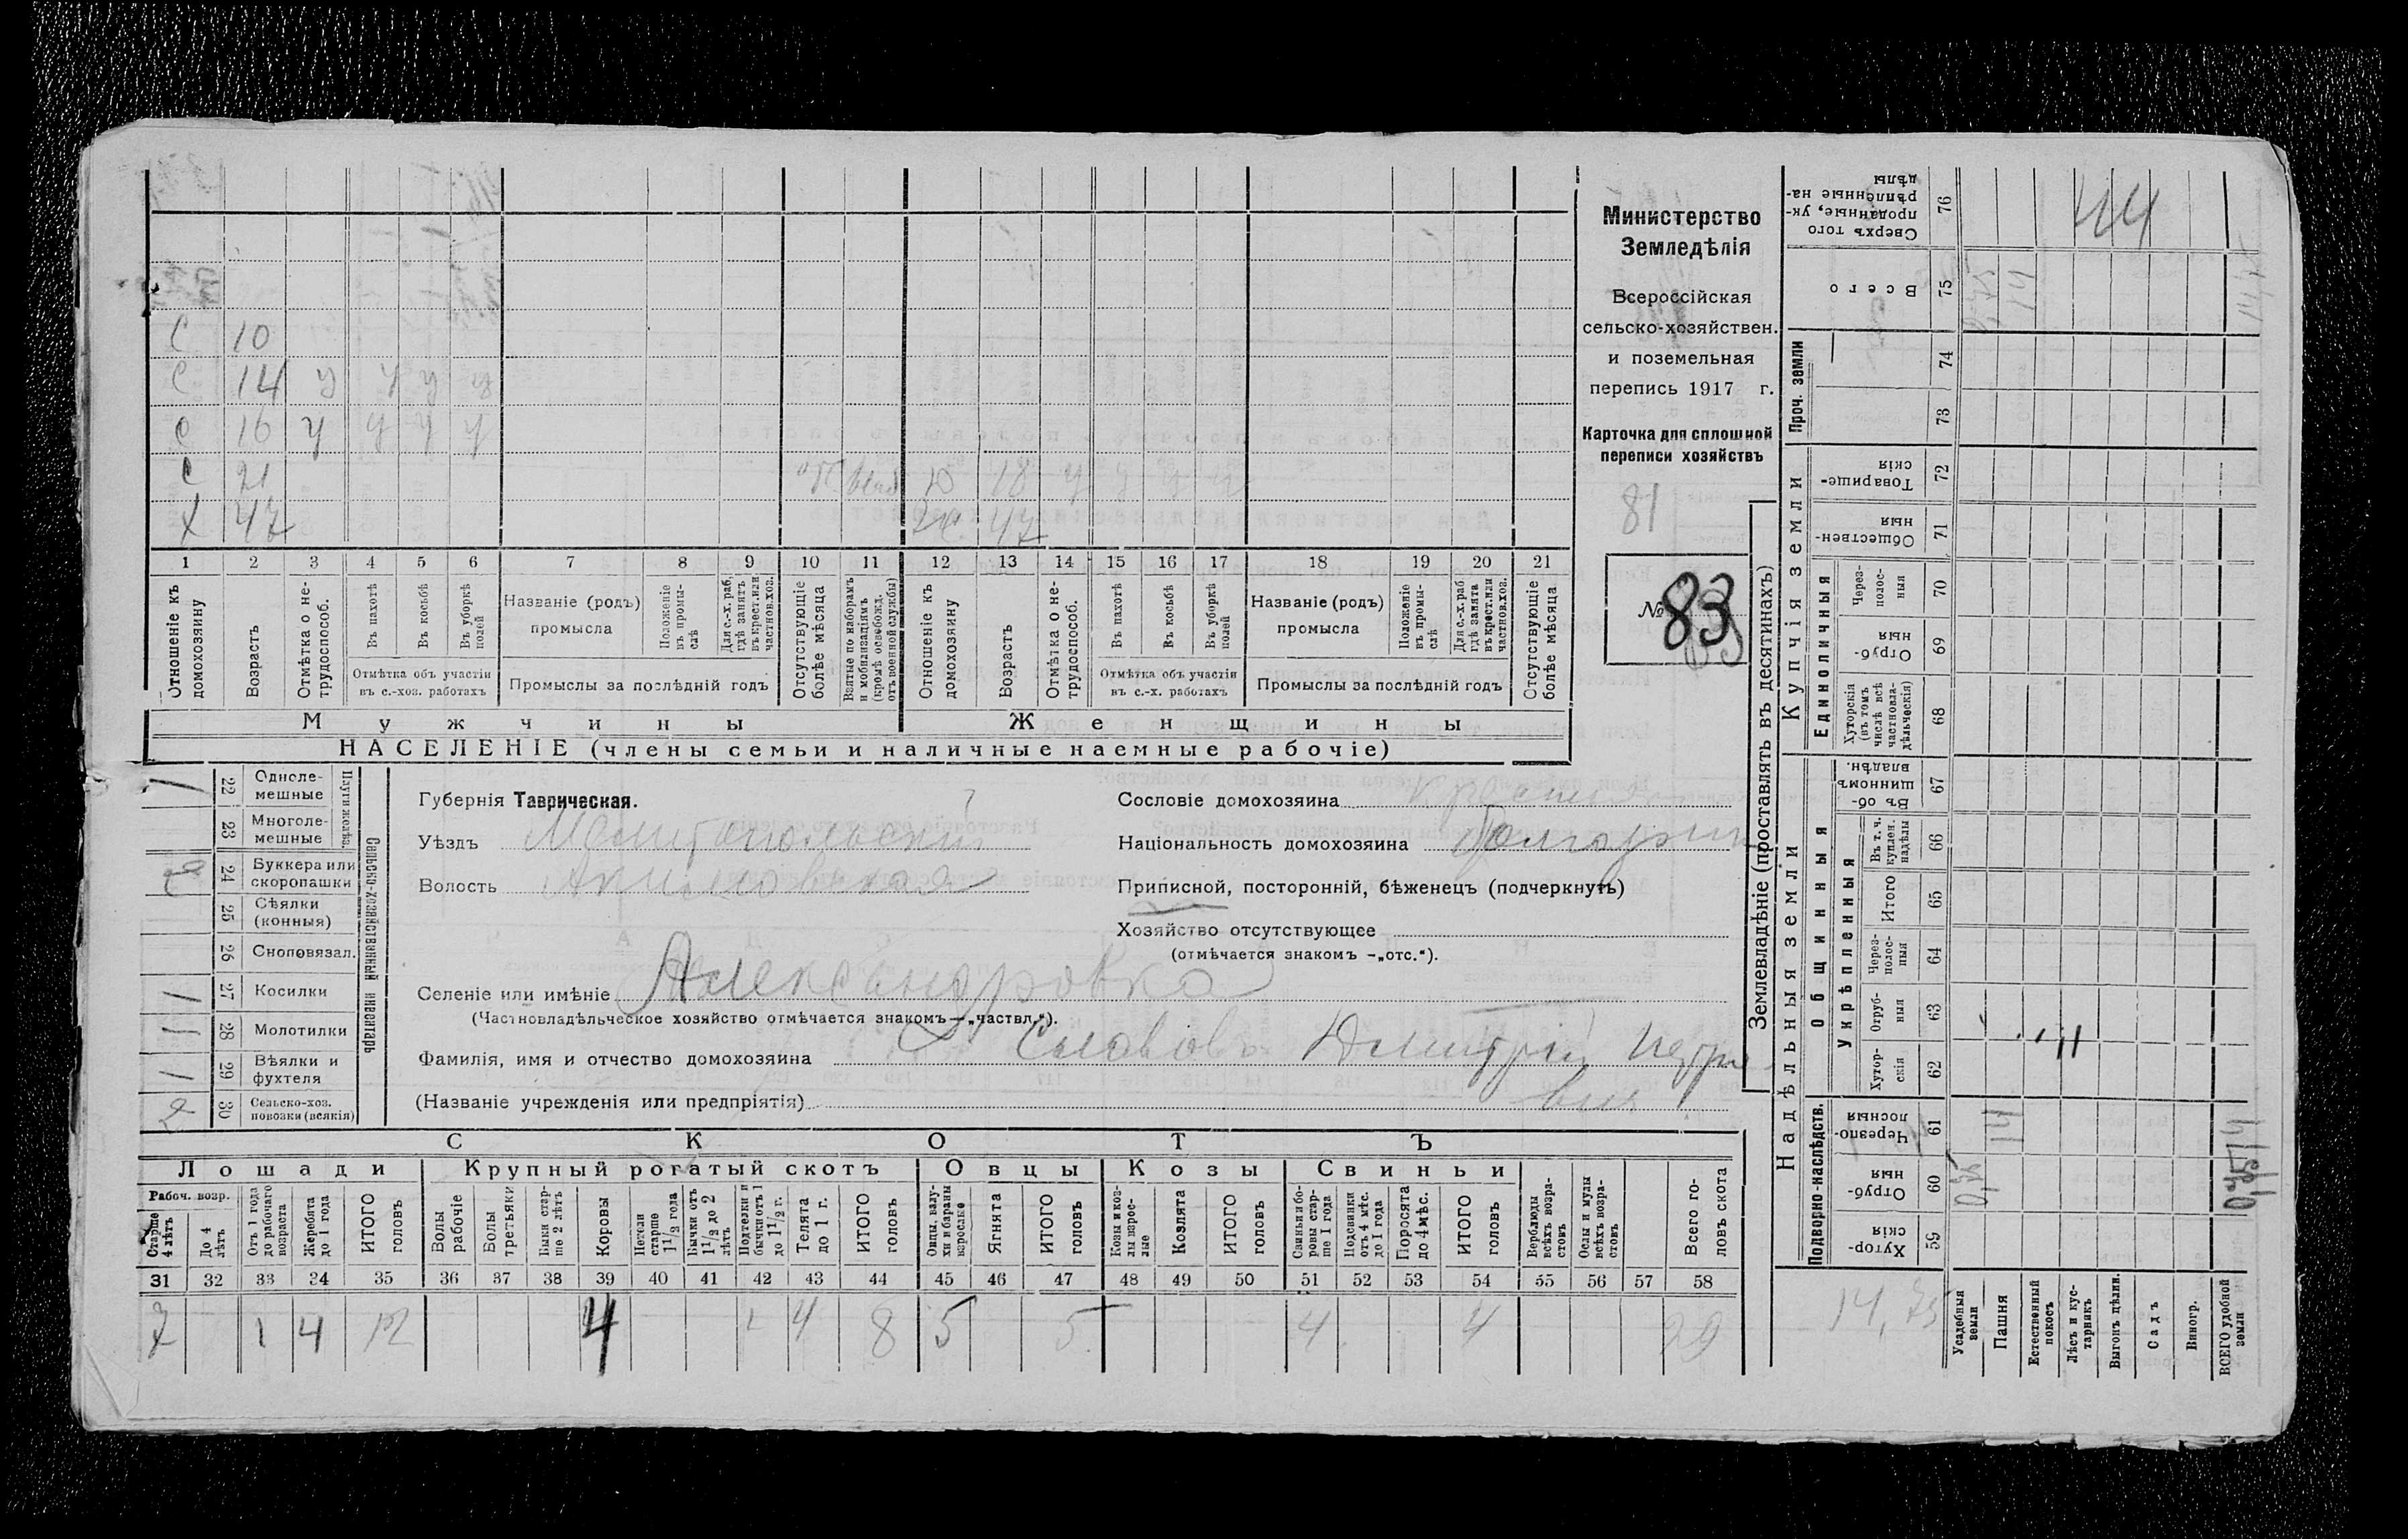 С 10
С 14 у у у у
С 16 у у у у
С 21 отс. D 18 у у у у
Х 47 Ж. 47
1 2 3 4 5 6 7 8 9 10 11 12 13 14 15 16 17 18 19 20 21
Отношеніе къ домохозяину
Возрастъ
Отмѣтка о не-трудоспособ.
Въ пахотѣ
Въ косьбѣ
Въ уборкѣ полей
Отмѣтка объ участіи въ с.-хоз. работахъ
Названіе (родъ) промысла
Положеніе въ промы-слѣ
Для с.-х. раб. гдѣ занятъ въ крест. или частновл. хоз.
Промыслы за послѣдній годъ
Отсутствующіе болѣе мѣсяца
Взятые по наборамъ и мобилизаціямъ (кромѣ освобожд. отъ военной службы)
Отношеніе къ домохозяину
Возрастъ
Отмѣтка о не-трудоспособ.
Въ пахотѣ
Въ косьбѣ
Въ уборкѣ полей
Отмѣтка объ участіи въ с.-х. работахъ
Названіе (родъ) промысла
Положеніе въ промы-слѣ
Для с.-х. раб. гдѣ занята въ крест. или частнов. хоз.
Промыслы за послѣдній годъ
Отсутствующіе болѣе мѣсяца
Мужчины Женщины
НАСЕЛЕНІЕ (члены семьи и наличные наемные рабочіе)
Министерство
Земледѣлія
Всероссійская
сельско-хозяйствен.
и поземельная
перепись 1917 г.
Карточка для сплошной
переписи хозяйствъ
81
№ 83
1 22 Одноле-мешные
23 Многоле-мешные
Плуги желѣз.
2 24 Буккера или скоропашки
25 Сѣялки (конныя)
26 Сноповязал.
1 27 Косилки
1 28 Молотилки
1 29 Вѣялки и фухтеля
2 30 Сельско-хоз. повозки (всякія)
Сельско-хозяйственный инвентарь
Губернія Таврическая.
Уѣздъ Мелитопольскій
Волость Акимовская
Сословіе домохозяина крестья
Національность домохозяина болгаринъ
Приписной, посторонній, бѣженецъ (подчеркнуть)
Хозяйство отсутствующее
(отмѣчается знакомъ -„отс.“).
Селеніе или имѣніе Александровка
(Частновладѣльческое хозяйство отмѣчается знакомъ—„частвл.“).
Фамилія, имя и отчество домохозяина Славовъ Дмитрій Петро
(Названіе учрежденія или предпріятія) вич
СКОТЪ
Лошади Крупный рогатый скотъ Овцы Козы Свиньи
Рабоч. возр.
Старше 4 лѣтъ
До 4 лѣтъ
Отъ 1 года до рабочаго возраста
Жеребята до 1 года
ИТОГО головъ
Волы рабочіе
Волы третьяки
Быки стар-ше 2 лѣтъ
Коровы
Нетели старше 1½ года
Бычки отъ 1½ до 2 лѣтъ
Подтелки и бычки отъ 1 до 1½ г.
Телята до 1 г.
ИТОГО головъ
Овцы, валу-хи и бараны взрослые
Ягнята
ИТОГО головъ
Козы и коз-лы взрос-лые
Козлята
ИТОГО головъ
Свиньи и бо-ровы стар-ше 1 года
Подсвинки отъ 4 мѣс. до 1 года
Поросята до 4 мѣс.
ИТОГО головъ
Верблюды всѣхъ возра-стовъ
Ослы и мулы всѣхъ возра-стовъ
Всего го-ловъ скота
31 32 33 34 35 36 37 38 39 40 41 42 43 44 45 46 47 48 49 50 51 52 53 54 55 56 57 58
7 1 4 12 4 4 8 5 5 4 4 29
Землевладѣніе (проставлять въ десятинахъ)
Надѣльныя земли Купчія земли Проч. земли
Подворно-наслѣдств.
Общинныя
Укрѣпленныя
Единоличныя
Хутор-скія 59
Отруб-ныя 60
Черезпо-лосныя 61
Хутор-скія 62
Отруб-ныя 63
Через-полос-ныя 64
Итого 65
Въ т. ч. куплен. надѣлы 66
Въ об-щинномъ владѣн. 67
Хуторскія (въ томъ числѣ всѣ частновла-дѣльческія) 68
Отруб-ныя 69
Через-полос-ныя 70
Обществен-ныя 71
Товарище-скія 72
73
74
Всего 75
Сверхъ того проданные, ук-рѣпленные на-дѣлы 76
44
14,75
Усадебныя земли
Пашня 14 14
Естественный покосъ
Лѣсъ и кус-тарникъ
Выгонъ цѣлин.
Садъ
Виногр.
ВСЕГО удобной земли